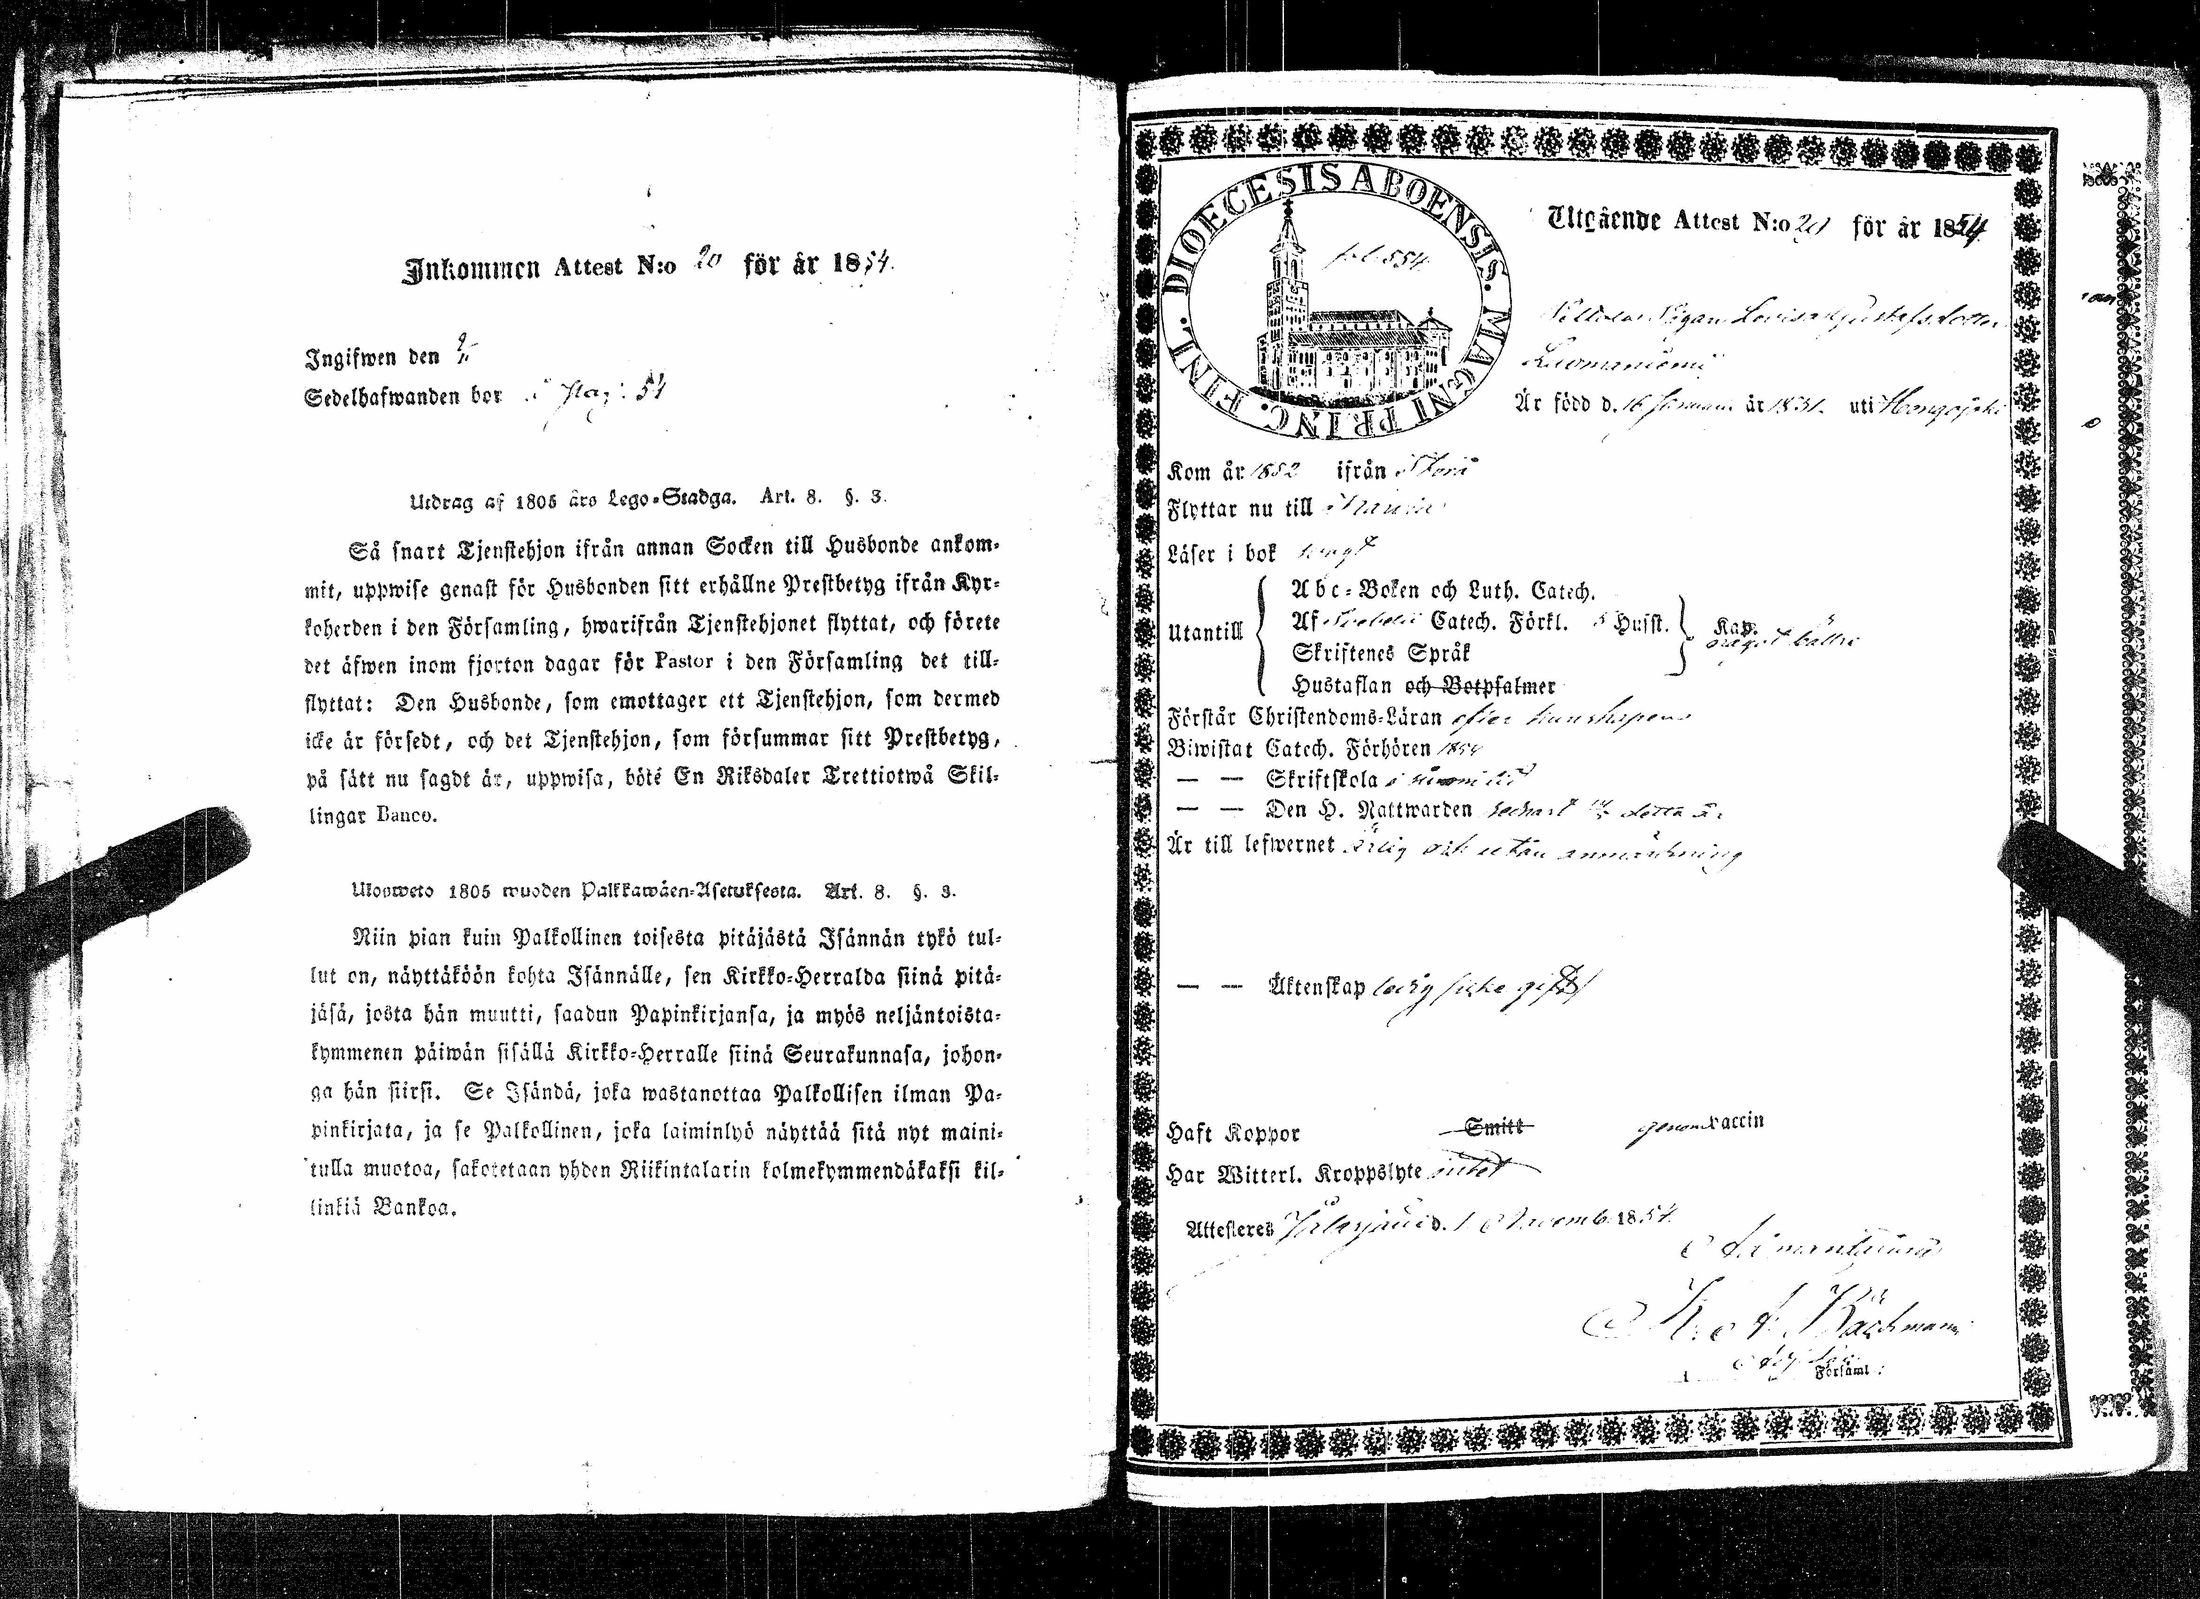 Inkommen Attest N:o 20 för år 1854.
Ingifwen den
Sedelhafwanden bor i pag: 54
Utdrag af 1805 års Lego-Stadga. Art. 8. §. 3.
Så snart Tjenstehjon ifrån annan Socken till Husbonde ankom-
mit, uppwise genast för Husbonden sitt erhållne Prestbetyg ifrån Kyr-
koherden i den Församling, hwarifrån Tjenstehjonet flyttat, och förete
det äfwen inom fjorton dagar för Pastor i den Församling det till-
flyttat: Den Husbonde, som emottager ett Tjenstehjon, som dermed
icke är försedt, och det Tjenstehjon, som försummar sitt Prestbetyg,
på sätt nu sagdt är, uppwisa, böte En Riksdaler Trettiotwå Skil-
lingar Banco.
Ulosweto 1805 wuoden Palkkawäen-Asetuksesta. Art. 8. §. 3.
Niin pian kuin Palkollinen toisesta pitäjästä Isännän tykö tul-
lut on, näyttäköön kohta Isännälle, sen Kirkko-Herralda siinä pitä-
jäsä, josta hän muutti, saadun Papinkirjansa, ja myös neljäntoista-
kymmenen päiwän sisällä Kirkko-Herralle siinä Seurakunnasa, johon-
ga hän siirsi. Se Isändä, joka wastanottaa Palkollisen ilman Pa-
pinkirjata, ja se Palkollinen, joka laiminlyö näyttää sitä nyt maini-
tulla muotoa, sakotetaan yhden Riikintalarin kolmekymmendäkaksi kil-
linkiä Bankoa.
DIOECESIS ABOENSIS. MAGNI PRINC. FINL.
fol. 554.
Utgående Attest N:o för år 1854
Pigan Lovisa Gustafsdotter
Luomaniemi
Är född d. 16 år 1831. uti
Kom år 1852 ifrån Storå
Flyttar nu till
Läser i bok
Utantill
Abc-Boken och Luth. Catech.
Af Svebelii Catech. Förkl. 5 Hufst. Kap.
något bättre
Skriftenes Språk
Hustaflan och Botpsalmer
Förstår Christendoms-Läran efter kunskapen
Biwistat Catech. Förhören 1854
— — Skriftskola i sinom tid
— — Den H. Nattwarden senast detta år
Är till lefwernet ärlig och utan anmärkning
— — Äktenskap ledig icke gift
Haft Koppor Smitt genom Vaccin
Har Witterl. Kroppslyte intet
Attesteres d. 1 Novemb. 1854.
Församl: